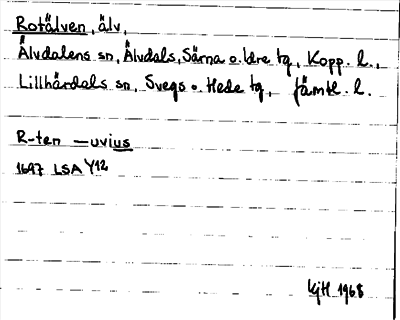 Rotälven, älv,
Älvdalens sn, Älvdals, Särna o. Idre tg, Kopp. l.,
Lillhärdals sn, Svegs o. Hede tg, Jämtl. l.
R-ten —uvius
1697 LSA Y12
KjH 1968